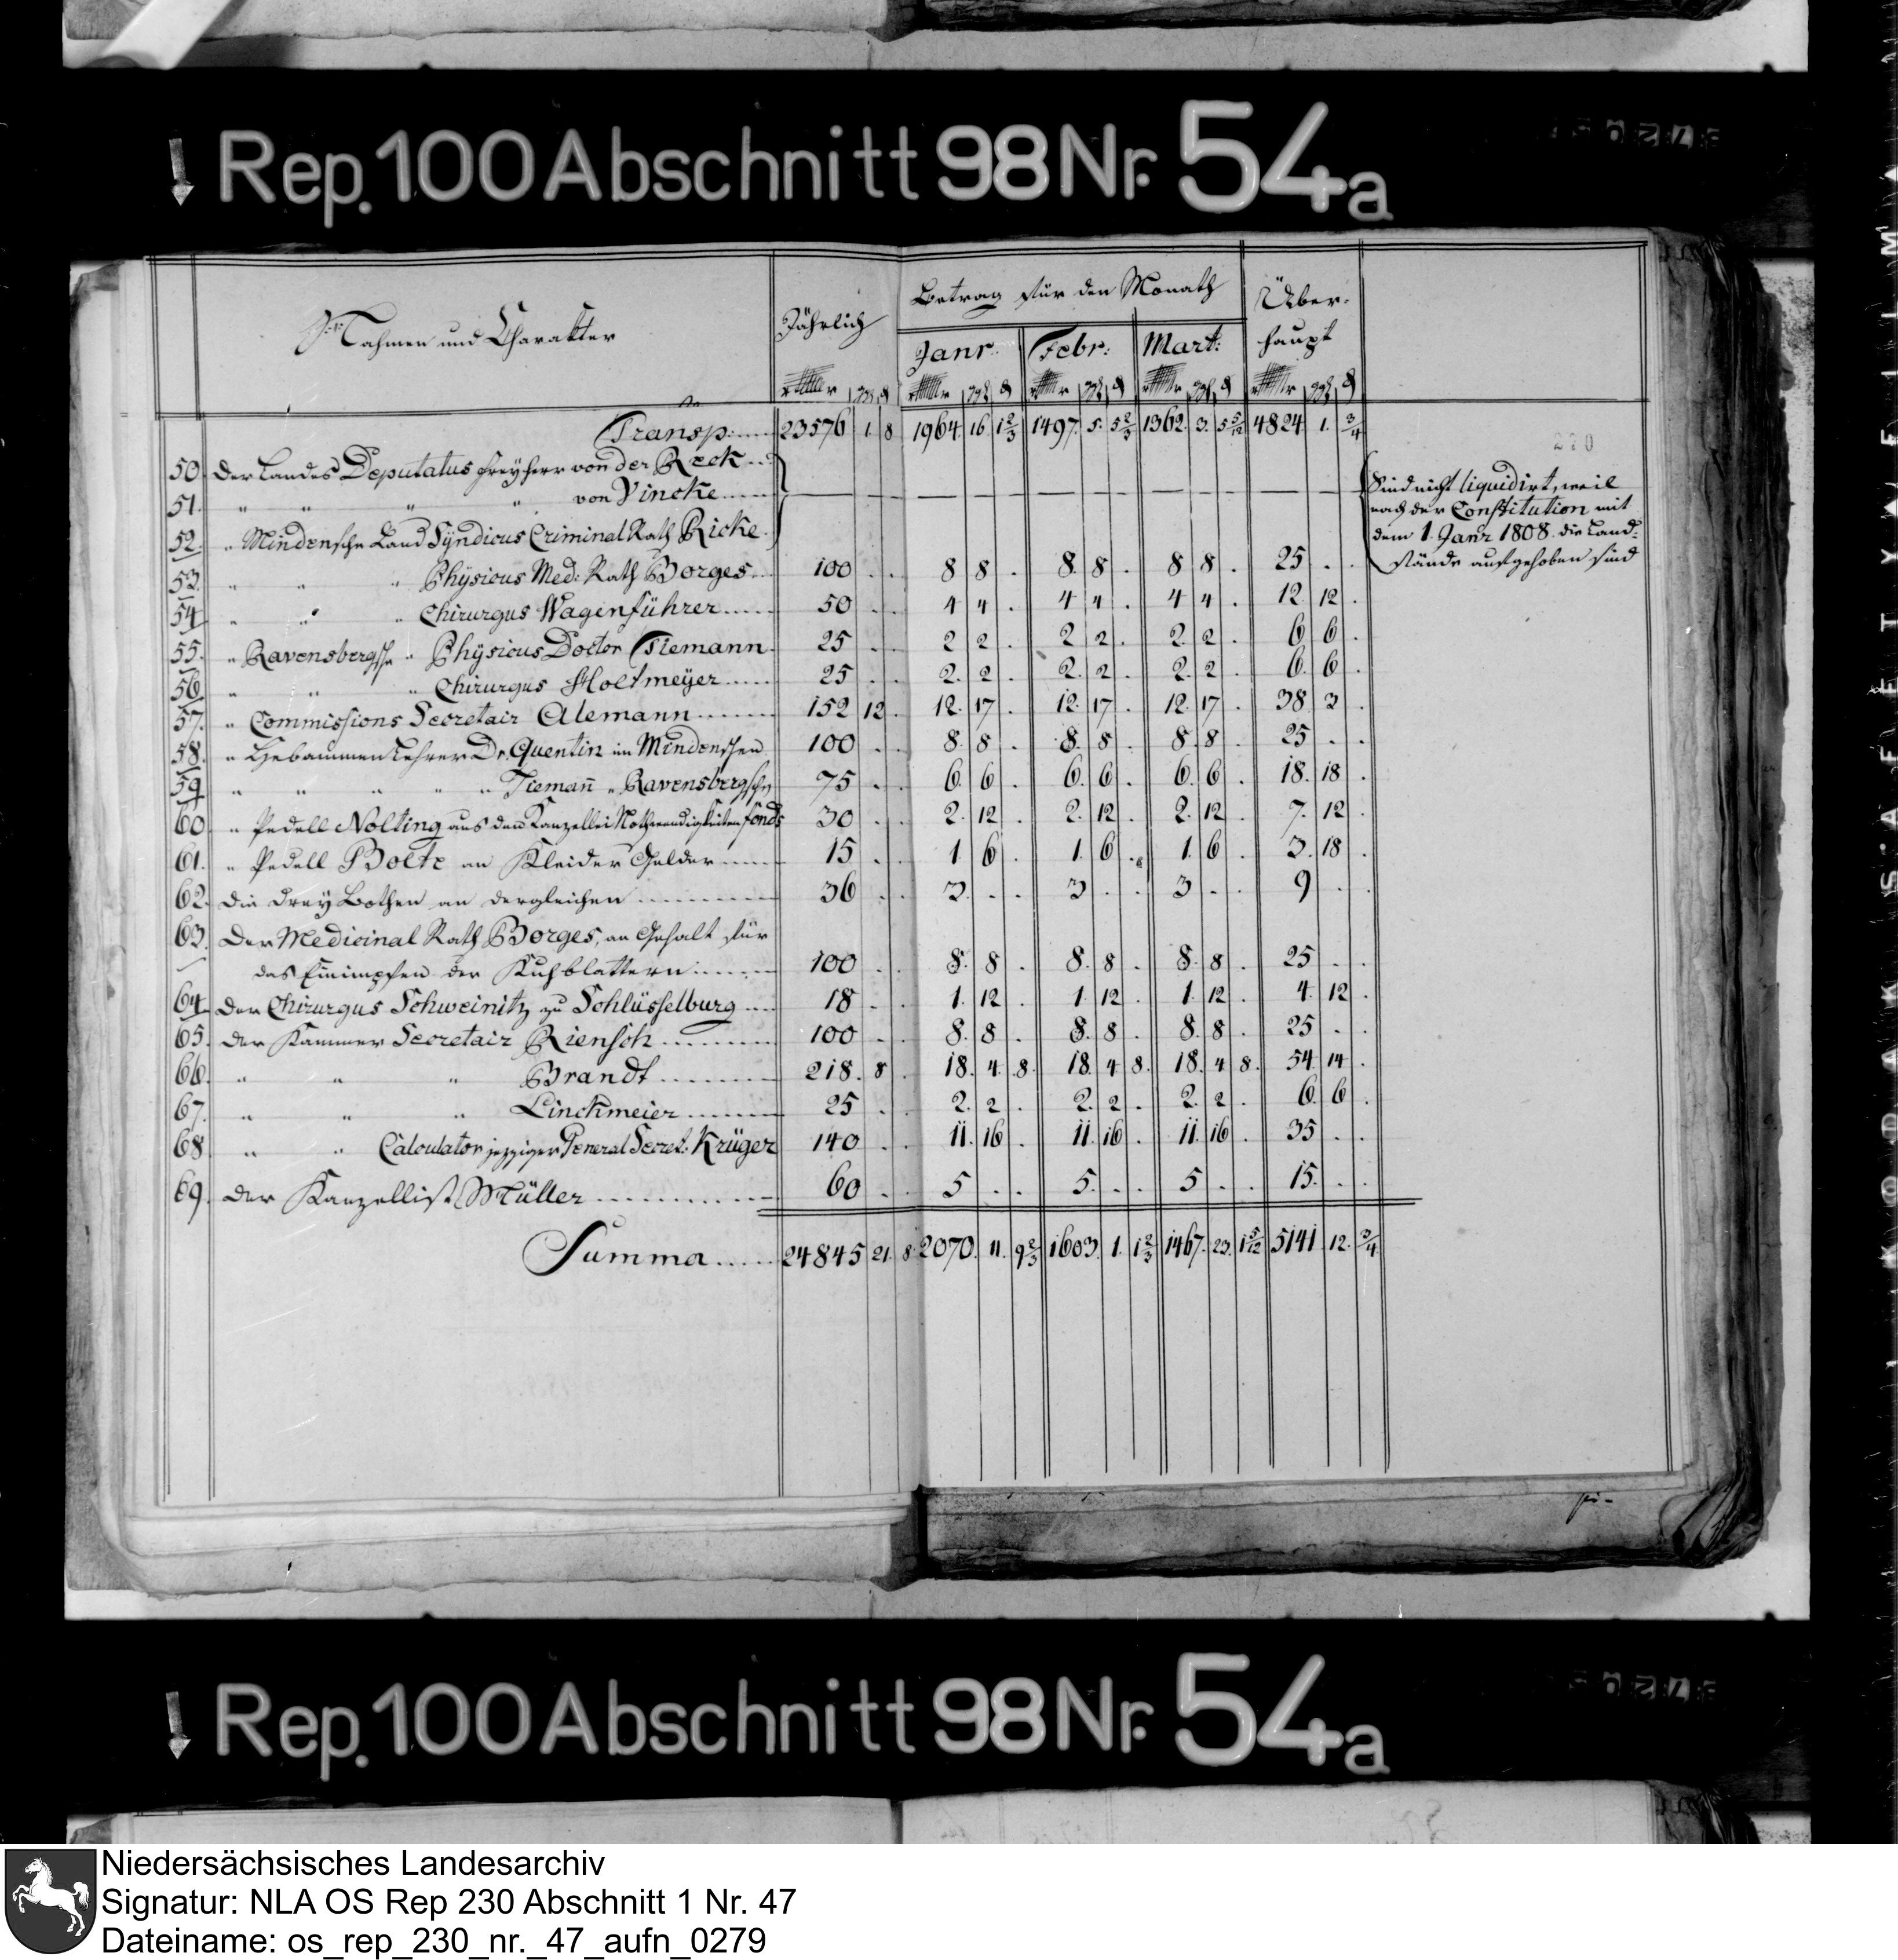 Rep. 100 Abschnitt 98 Nr. 54a
Nahmen und Charakter
Jährlich
Betrag für den Monath
Über-
haupt
Janr. Febr: Mart:
Transp: 23576 1. 8 1964. 16. 1 2/3 1497. 5. 5 2/3 1362. 3. 5 5/12 4824 1. 3/4
50. Der Landes Deputatus Freyherr von der Reck
51. " " " " von Vincke — — — — — — — — — — — — —
Sind nicht liquidirt, weil
nach der Constitution mit
dem 1. Janr 1808. die Land-
stände aufgehoben sind
52. " Mindensche Land Syndicus Criminal Rath Ricke
53. " " " Physicus Med: Rath Borges 100 . . 8 8 . 8. 8 . 8 8 . 25 . .
54. " " " Chirurgus Wagenführer 50 . . 4 4 . 4 4 . 4 4 . 12. 12 .
55. " Ravensbergsche " Physicus Doctor Tiemann 25 . . 2 2 . 2 2 . 2. 2 . 6 6 .
56. " " " Chirurgus Holtmeyer 25 . . 2. 2 . 2. 2 . 2. 2 . 6. 6 .
57. " Commissions Secretair Alemann 152 12 . 12. 17 . 12. 17 . 12. 17 . 38. 3 .
58. " Hebammen Lehrer Dr. Quentin im Mindenschen 100 . . 8. 8 . 8. 8 . 8. 8 . 25 . .
59. " " " " " Tiemann " Ravensbergschen 75 . . 6. 6 . 6. 6 . 6. 6 . 18. 18 .
60. " Pedell Nolting aus dem Kanzellei Nothwendigkeiten fonds 30 . . 2. 12 . 2. 12 . 2. 12 . 7. 12 .
61. " Pedell Bolte an Kleider Gelder 15 . . 1. 6 . 1. 6 . 1. 6 . 3. 18 .
62. Die drey Bothen an dergleichen 36 . . 3. . . 3 . . 3 . . 9 . .
63. Der Medicinal Rath Borges, an Gehalt für
das Einimpfen der Kuhblattern 100 . . 8. 8 . 8. 8 . 8. 8 . 25 . .
64. Der Chirurgus Schweinitz zu Schlüsselburg 18 . . 1. 12 . 1. 12 . 1. 12 . 4. 12 .
65. Der Kammer Secretair Riensch 100 . . 8. 8 . 8. 8 . 8. 8 . 25 . .
66. " " " Brandt 218. 8 . 18. 4. 8. 18. 4 8. 18. 4 8. 54 14 .
67. " " " Linckmeier 25 . . 2. 2 . 2. 2 . 2. 2 . 6. 6 .
68 " " Calculator jezziger General Secret: Krüger 140 . . 11. 16 . 11. 16 . 11. 16 . 35 . .
69. Der Kanzellist Müller 60 . . 5 . . 5. . . 5 . . 15. . .
Summa 24845 21. 8 2070. 11. 9 2/3 1603. 1. 1 2/3 1467. 23. 1 5/12 5141 12. 3/4
Rep. 100 Abschnitt 98 Nr. 54a
Niedersächsisches Landesarchiv
Signatur: NLA OS Rep 230 Abschnitt 1 Nr. 47
Dateiname: os_rep_230_nr._47_aufn_0279